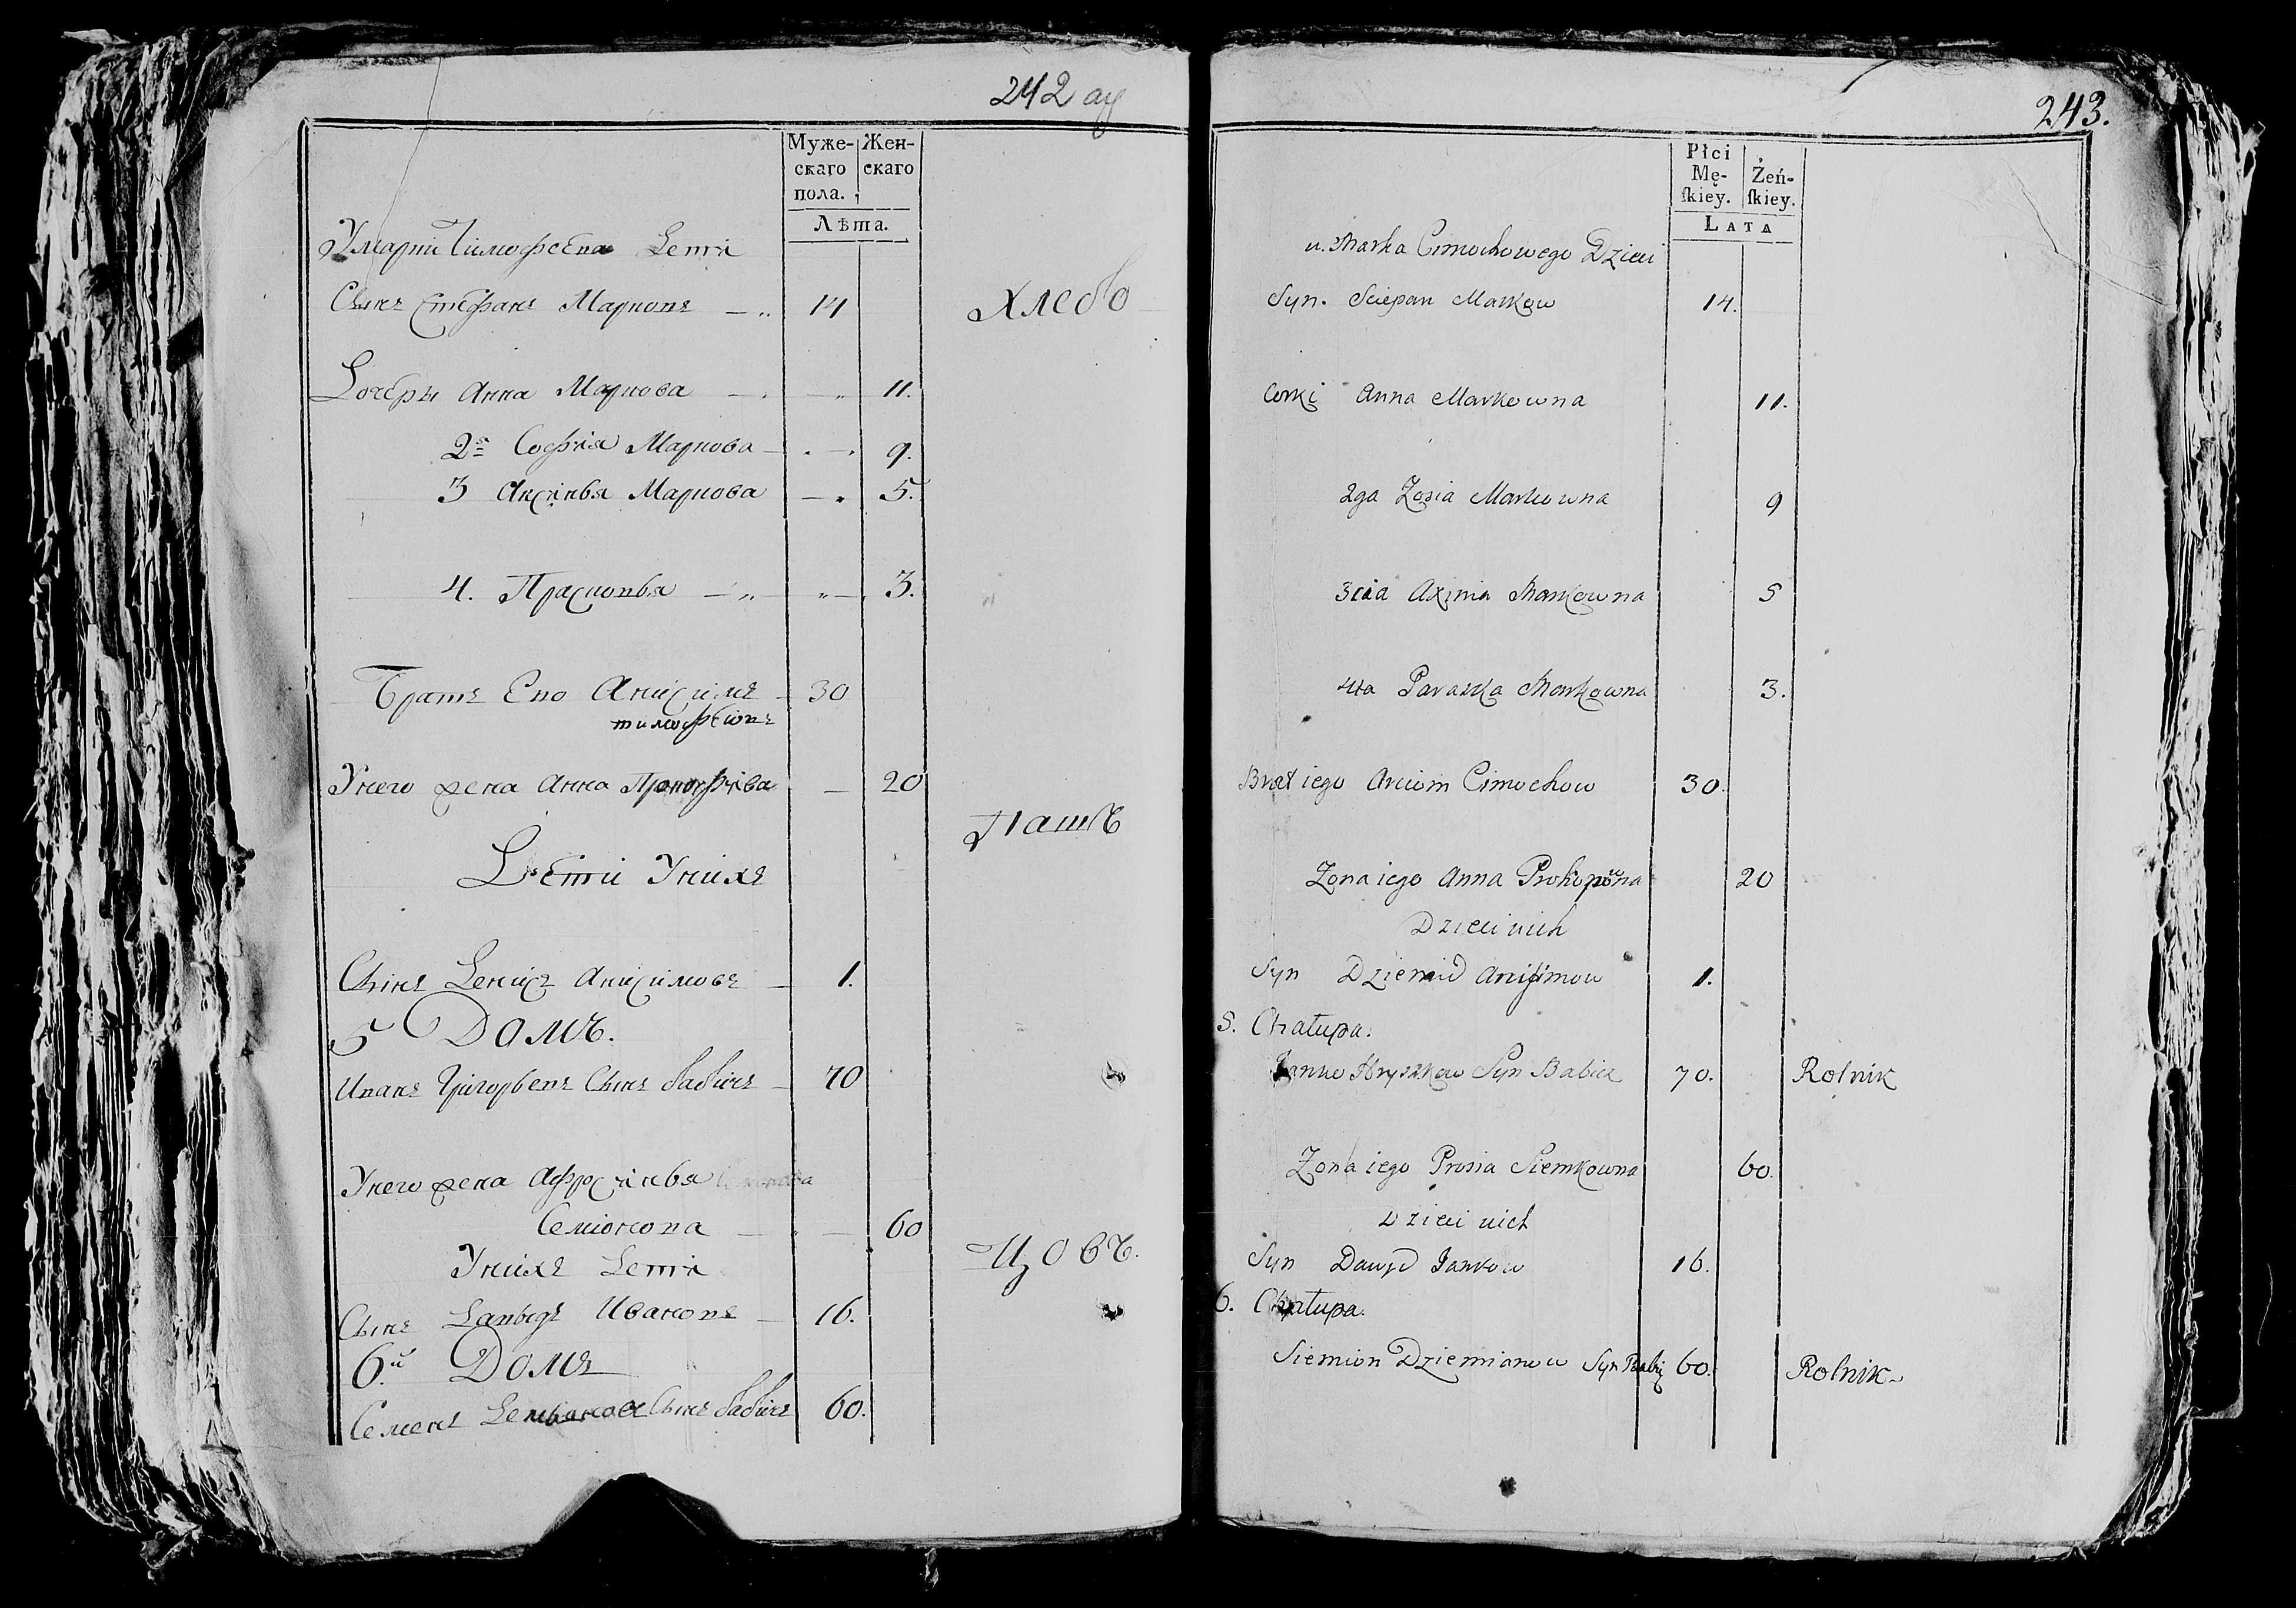 242 ау
Муже-
скаго
пола.
Жен-
скаго
Лѣта.
Умарки Тимофеева Дети
Сынъ Стефанъ Марковъ 14
Хлебо
Дочеры Анна Маркова 11.
2я Софиia Маркова 9.
3 Аксинья Маркова 5.
4. Прасковья 3.
Братъ Ево Анисимъ 30
тимофеювъ
Унего жена Анна 20
Пашъ
Дети Унихъ
Сынъ Денисъ Анисимовъ 1.
5 Домъ.
Иванъ Григорьевъ Сынъ бабичъ 70
Унего жена Афросинья
Семионова 60
Унихъ Дети
Цовъ.
Сынъ Давыдъ Ивановъ 16.
6.й Домъ
Семенъ Демьяновъ Сынъ бабичъ 60.
243.
Płci
Mę-
ſkiey.
Żeń-
ſkiey.
LATA
u. Marka Cimochowego Dzieci
Syn. Sciepan Markow 14.
Corki Anna Markowna 11.
2ga Zosia Markowna 9
3cia Axinia Markowna 5
4ta Paraska Markowna 3.
Brat iego Anciom Cimochow 30.
Zona iego Anna Prokopowna 20
Dzieci nich
Syn Dziemid Anisimow 1.
5. Chałupa.
Janko Hryszkow Syn Babicz 70. Rolnik
Zona iego Prosia Siemkowna 60.
Dzieci nich
Syn Dawyd Jankow 16.
6. Chałupa.
Siemion Dziemianow Syn Babicz 60. Rolnik